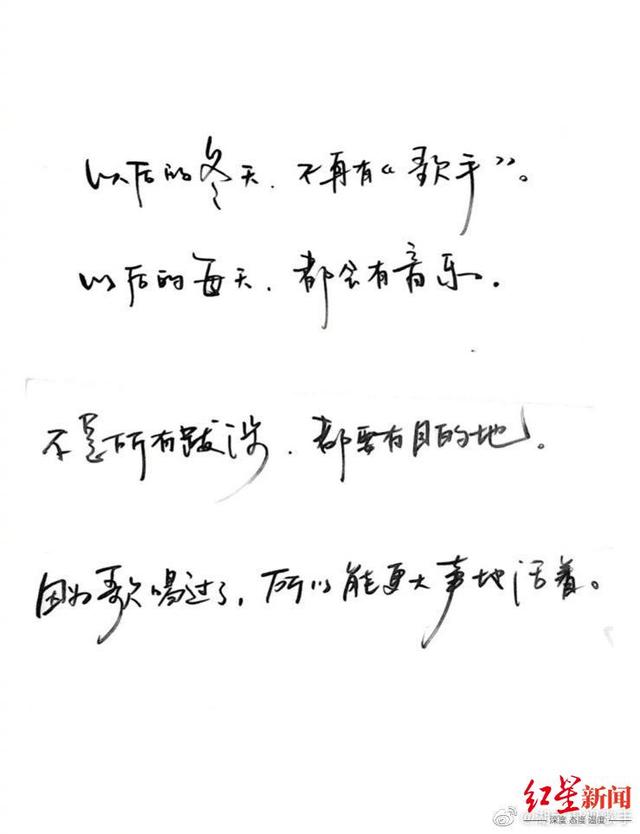 以后的冬天，不再有《歌手》。
以后的每天，都会有音乐。
不是所有跋涉，都要有目的地。
因为歌唱过了，所以能更大声地活着。
红星新闻
深度 态度 温度